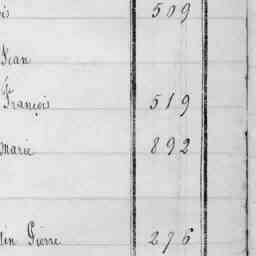 is 509
Jean
François 519
marie 892
tin Pierre 276